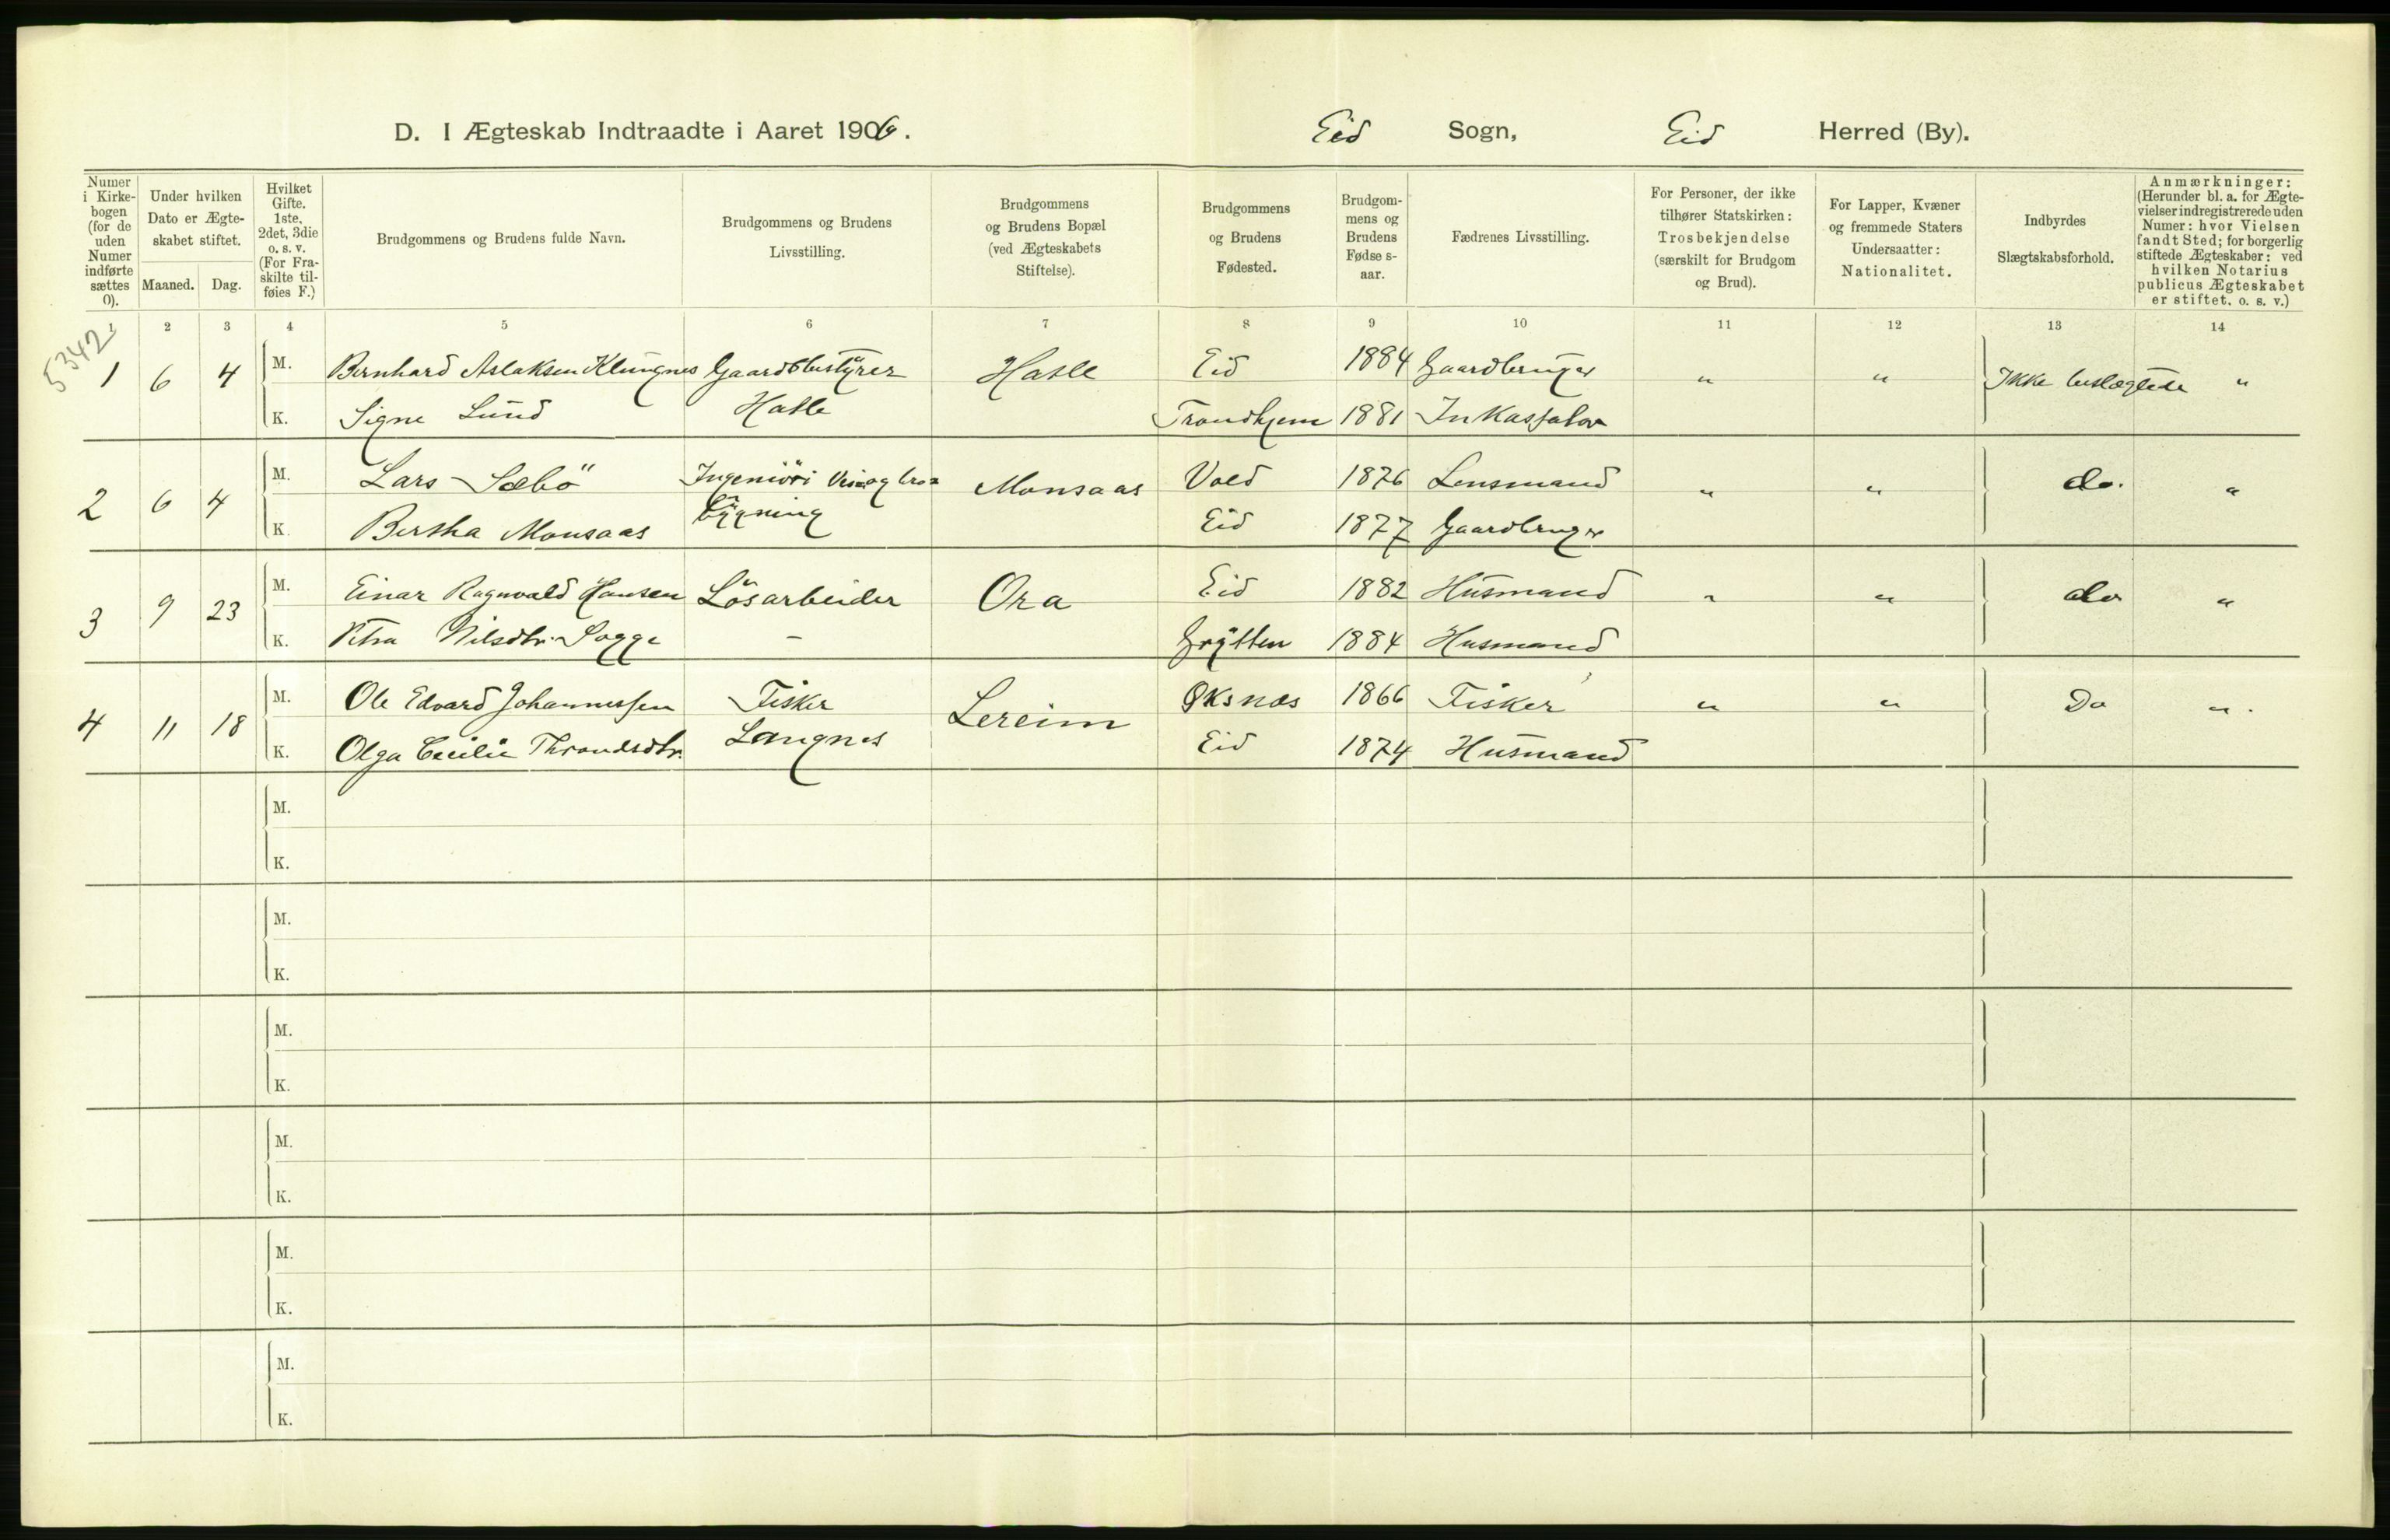 D. I Ægteskab Indtraadte i Aaret 1906. Eid Sogn, Eid Herred (By).
Numer i Kirke-bogen (for de uden Numer indførte sættes 0).
Under hvilken Dato er Ægte-skabet stiftet.
Maaned. Dag.
Hvilket Gifte. 1ste, 2det, 3die o. s. v. (For Fra-skilte til-føies F.)
Brudgommens og Brudens fulde Navn.
Brudgommens og Brudens Livsstilling.
Brudgommens og Brudens Bopæl (ved Ægteskabets Stiftelse).
Brudgommens og Brudens Fødested.
Brudgom-mens og Brudens Fødse s-aar.
Fædrenes Livsstilling.
For Personer, der ikke tilhører Statskirken: Trosbekjendelse (særskilt for Brudgom og Brud).
For Lapper, Kvæner og fremmede Staters Undersaatter: Nationalitet.
Indbyrdes Slægtskabsforhold.
Anmærkninger: (Herunder bl. a. for Ægte-vielser indregistrerede uden Numer: hvor Vielsen fandt Sted; for borgerlig stiftede Ægteskaber: ved hvilken Notarius publicus Ægteskabet er stiftet, o. s. v.)
1 2 3 4 5 6 7 8 9 10 11 12 13 14
5342
1 6 4 M. Bernhard Aslaksen Klungnes Gaardsbestyrer Hatle Eid 1884 Gaardbruger " " Ikke beslægtede "
K. Signe Lund Hatle Trondhjem 1881 Inkassator
2 6 4 M. Lars Sæbö Ingeniör i Vei og bro= Monsaas Vold 1876 Lensmand " " do. "
K. Bertha Monsaas bygning Eid 1877 Gaardbruger
3 9 23 M. Einar Ragnvald Hansen Lösarbeider Ora Eid 1882 Husmand " " do "
K. Petra Nilsdtr. Sogge – Grytten 1884 Husmand
4 11 18 M. Ole Edvard Johannessen Fisker Lereim Öksnes 1866 Fisker " " Do " .
K. Olga Cecilie Throndsdtr. Langnes Eid 1874 Husmand
M.
K.
M.
K.
M.
K.
M.
K.
M.
K.
M.
K.